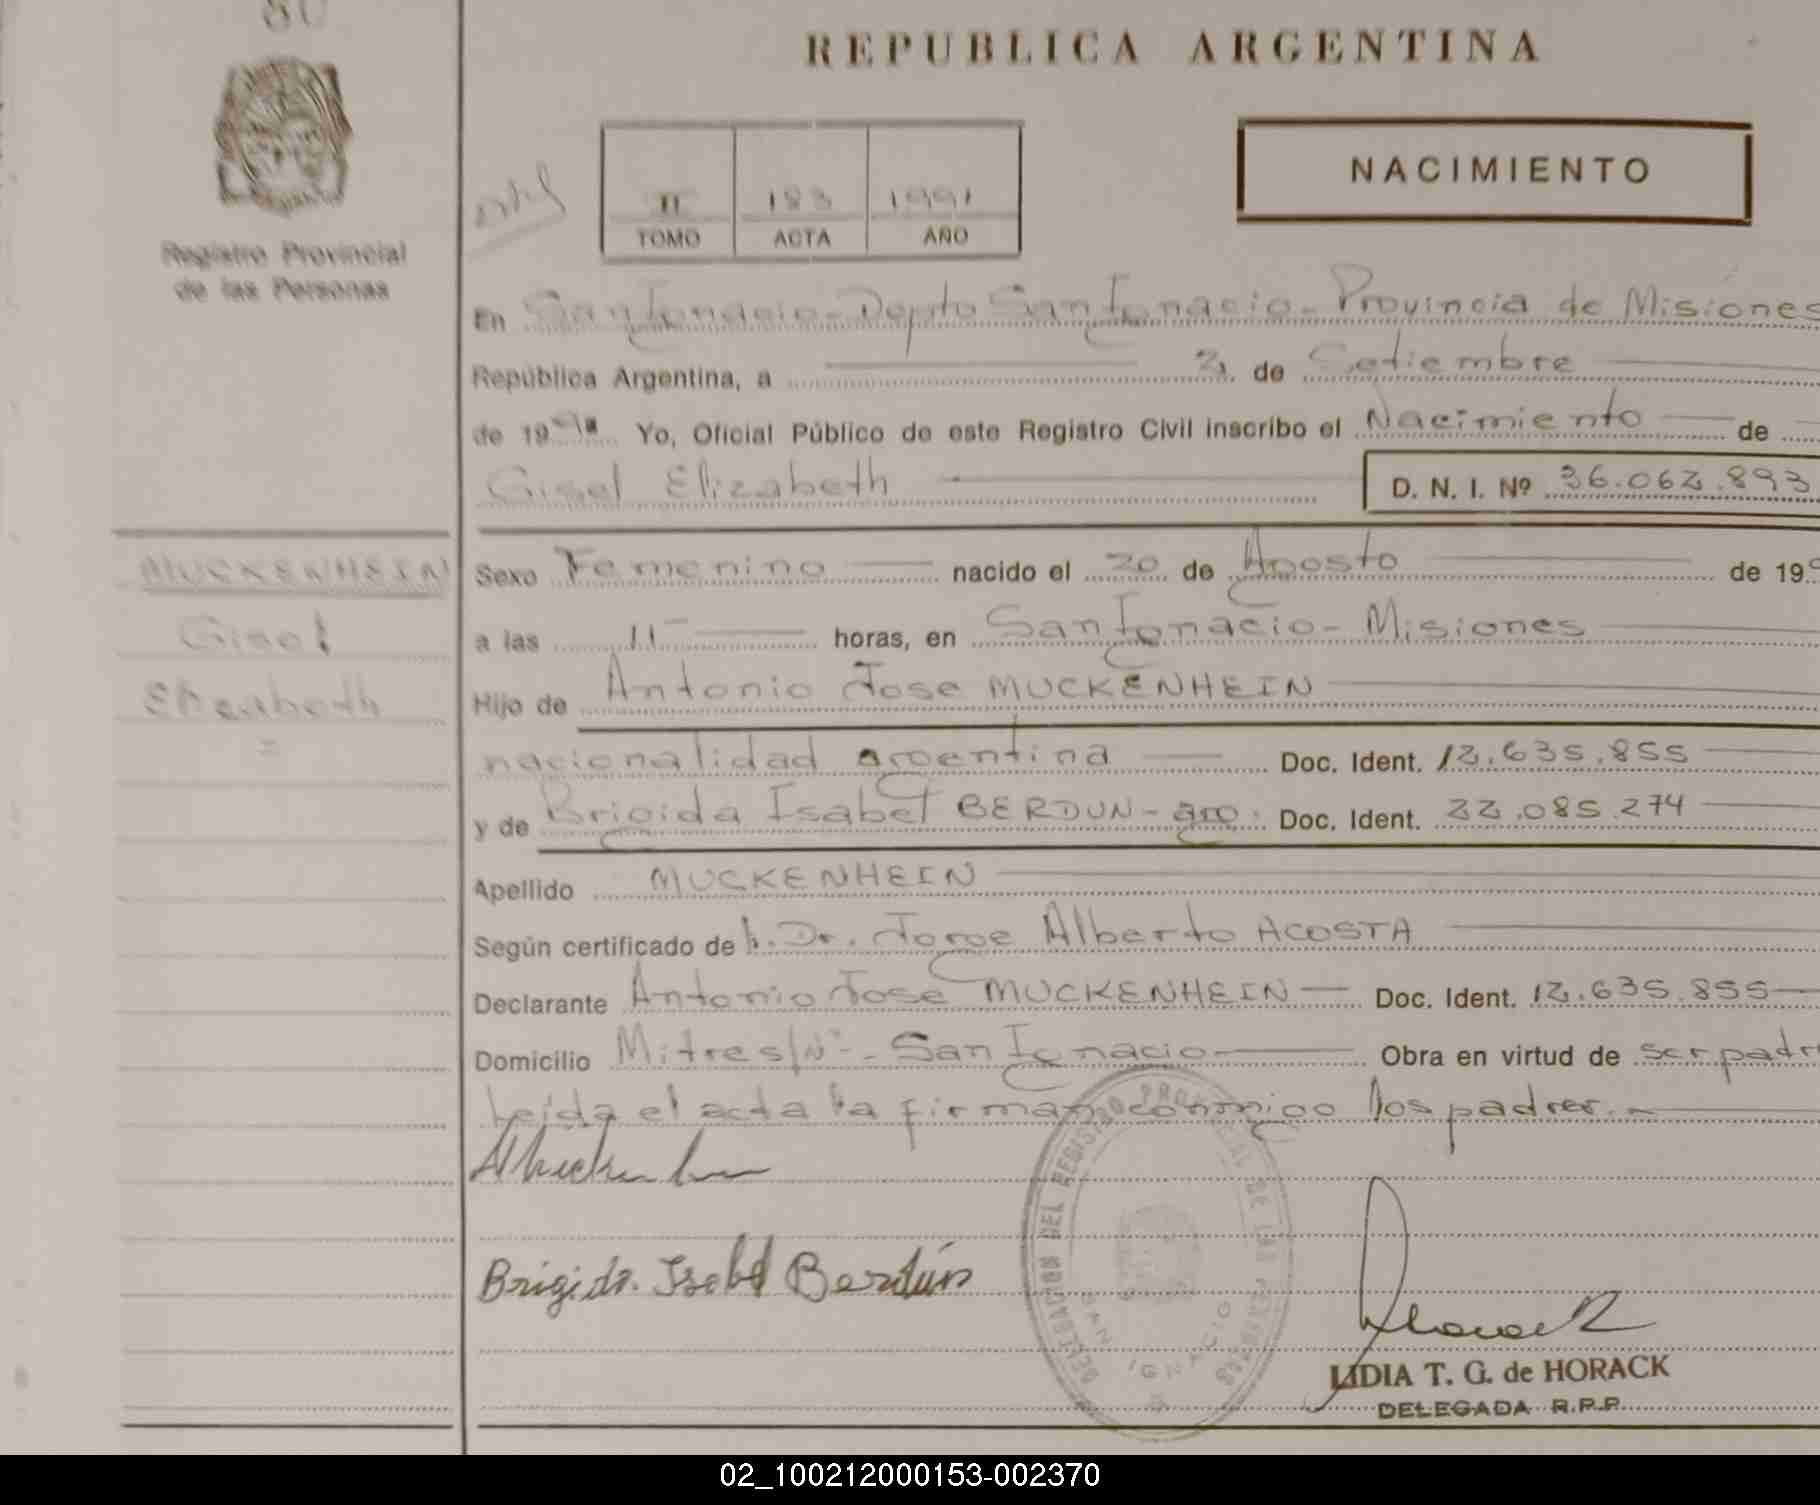 80
REPUBLICA ARGENTINA
NACIMIENTO
Registro Provincial
de las Personas
II 183 1991
TOMO ACTA AÑO
En San Ignacio - Depto San Ignacio - Provincia de Misiones
República Argentina, a 2 de Setiembre
de 19 91 Yo, Oficial Público de este Registro Civil inscribo el Nacimiento de
Gisel Elizabeth D. N. I. Nº 36.062.893
MUCKENHEIN
Gisel
Elizabeth
Sexo Femenino nacido el 20 de Agosto de 19
a las 11 horas, en San Ignacio - Misiones
Hijo de Antonio Jose MUCKENHEIN
nacionalidad argentina Doc. Ident. 12.635.855
y de Brigida Isabel BERDUN - arg. Doc. Ident. 22.085.274
Apellido MUCKENHEIN
Según certificado de Dr. Jorge Alberto ACOSTA
Declarante Antonio Jose MUCKENHEIN Doc. Ident. 12.635.855
Domicilio Mitre s/Nº - San Ignacio Obra en virtud de ser padr
Leida el acta la firman conmigo los padres.
Brigida Isabel Berdún
DELEGACION DEL REGISTRO PROVINCIAL DE LAS PERSONAS
SAN IGNACIO
LIDIA T. G. de HORACK
DELEGADA R.P.P.
02_100212000153-002370